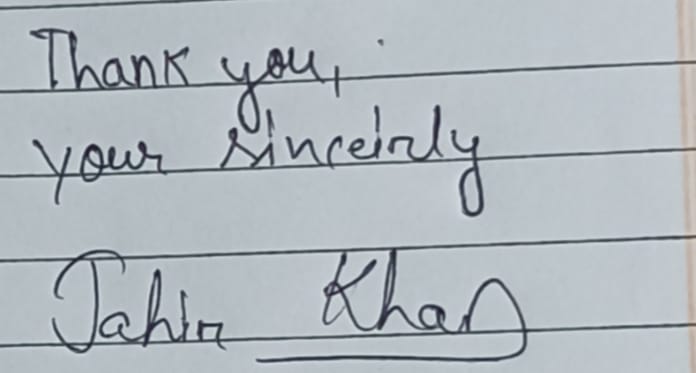 Thank you,
your sinceirly
Jahir Khan